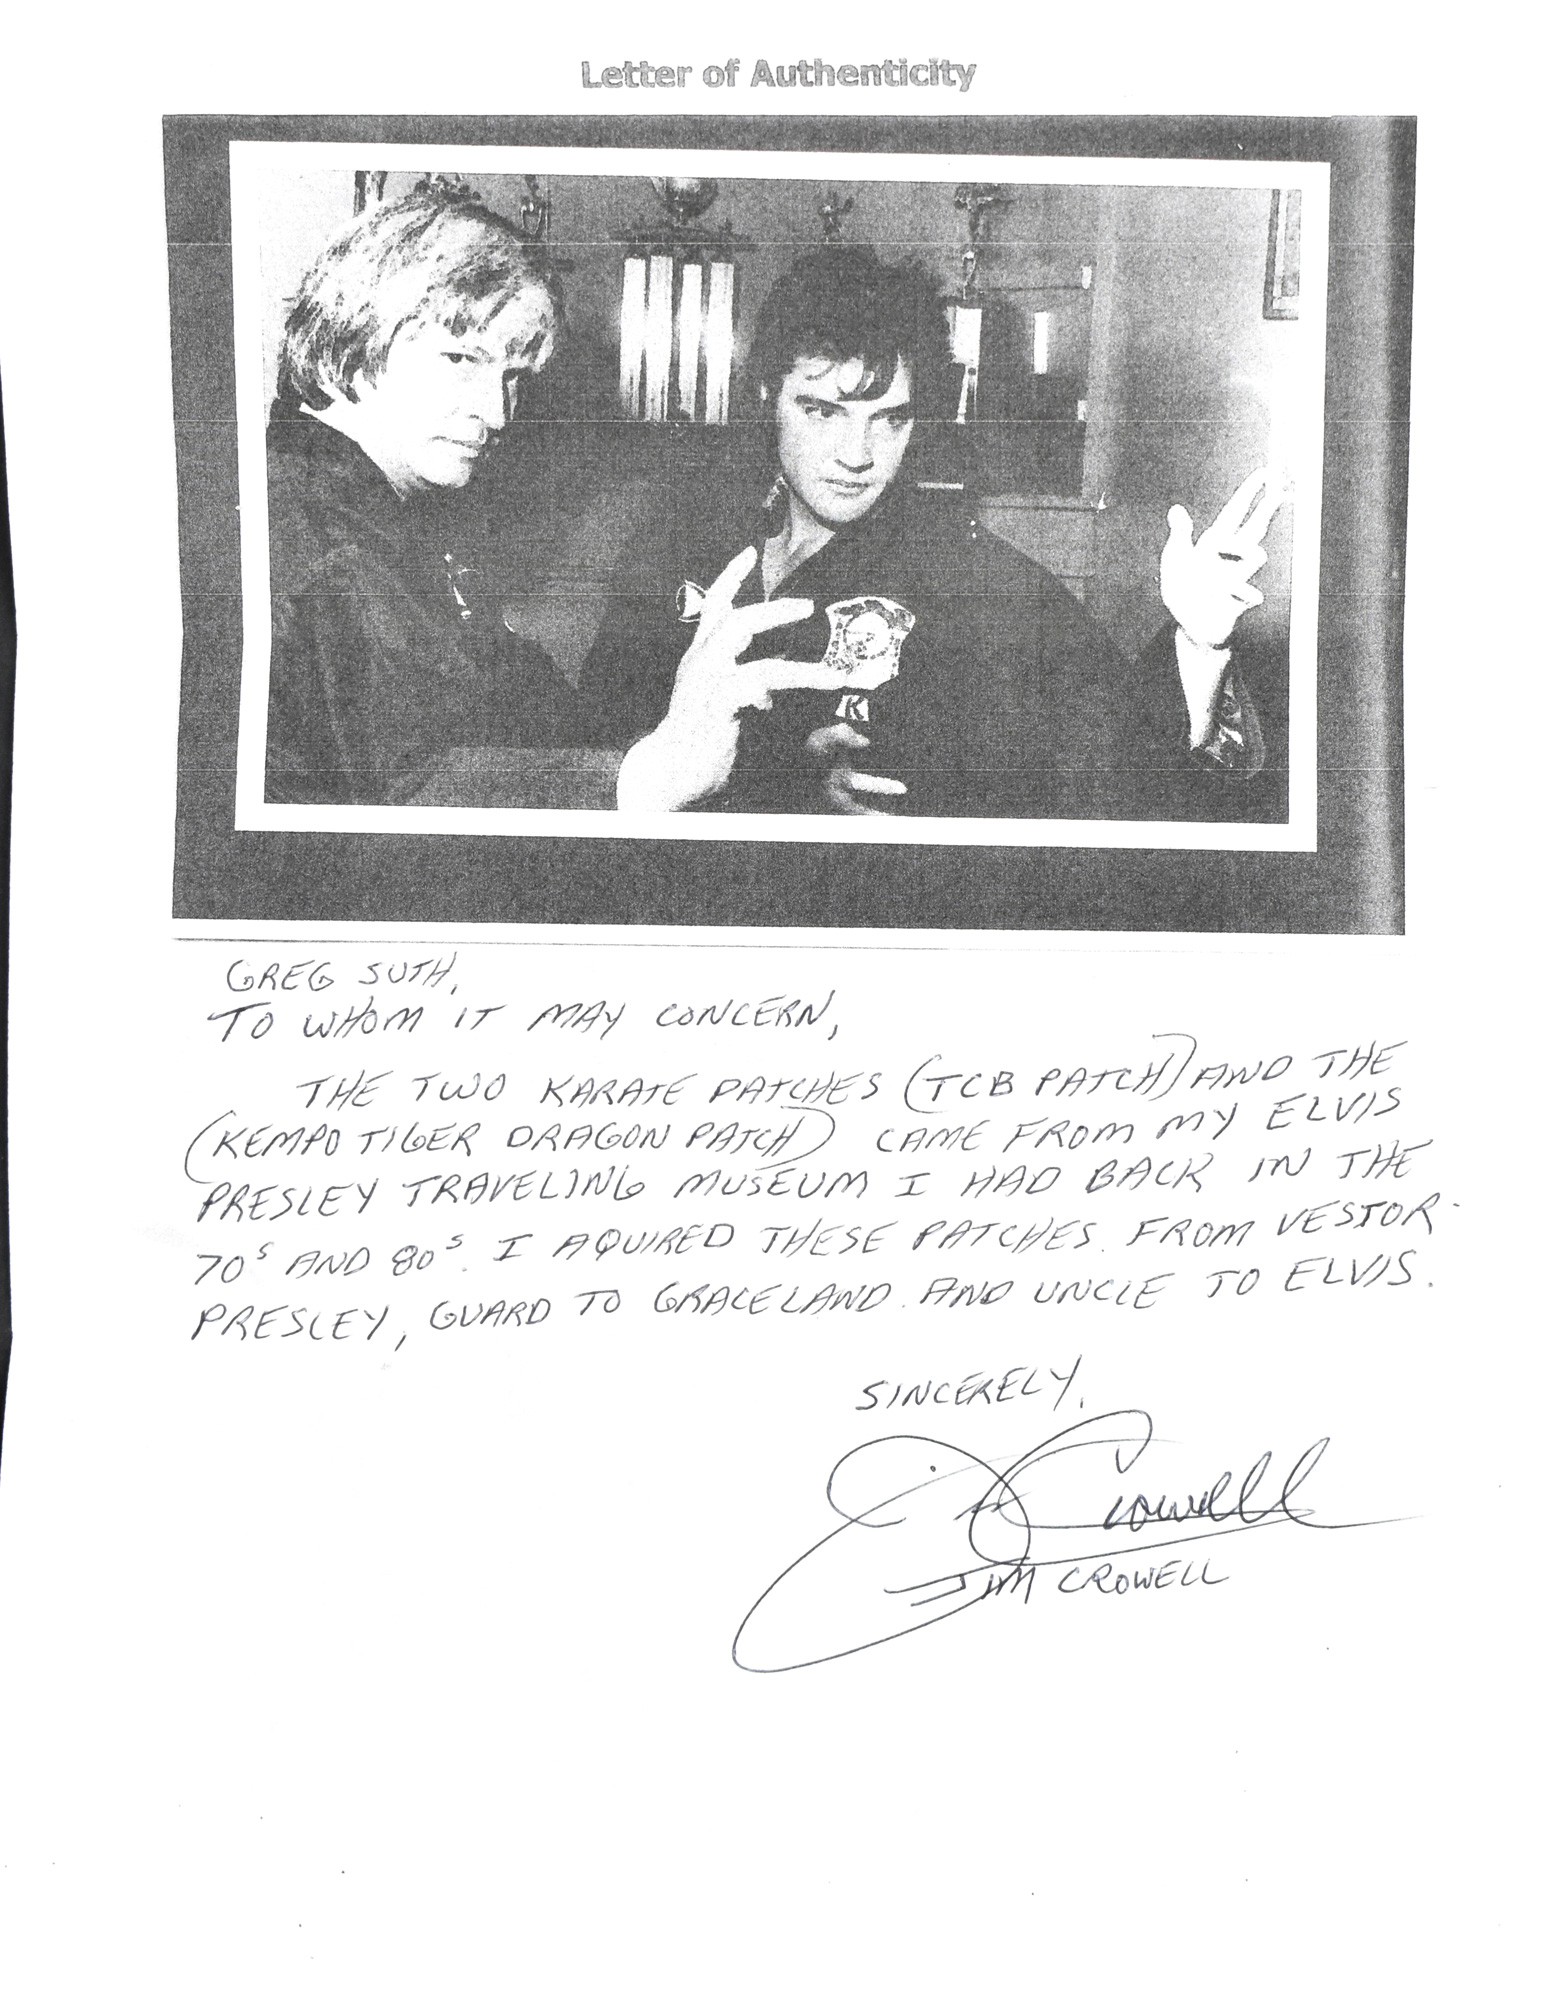 Letter of Authenticity
K
GREG SUTH,
TO WHOM IT MAY CONCERN,
THE TWO KARATE PATCHES (TCB PATCH) AND THE
(KEMPO TIGER DRAGON PATCH) CAME FROM MY ELVIS
PRESLEY TRAVELING MUSEUM I HAD BACK IN THE
70s AND 80s. I AQUIRED THESE PATCHES. FROM VESTOR
PRESLEY, GUARD TO GRACELAND. AND UNCLE TO ELVIS.
SINCERELY,
Jim Crowell
JIM CROWELL